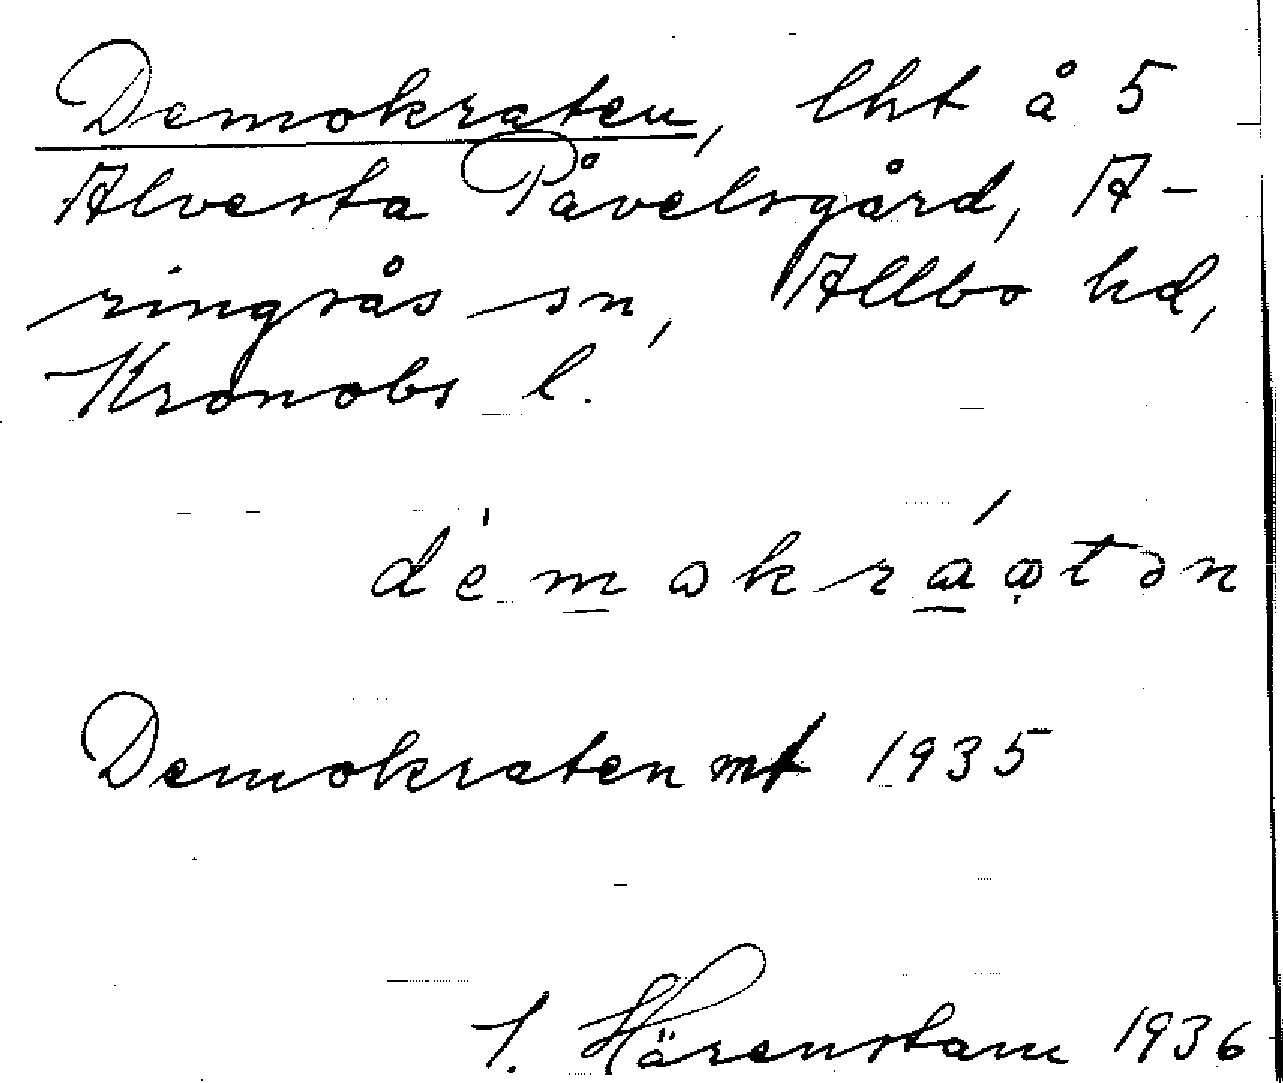 Demokraten, lht å 5
Alvesta Påvelsgård, A-
ringsås sn, Allbo hd,
Kronobs l.
démokráatən
Demokraten mt 1935
Härenstam 1936